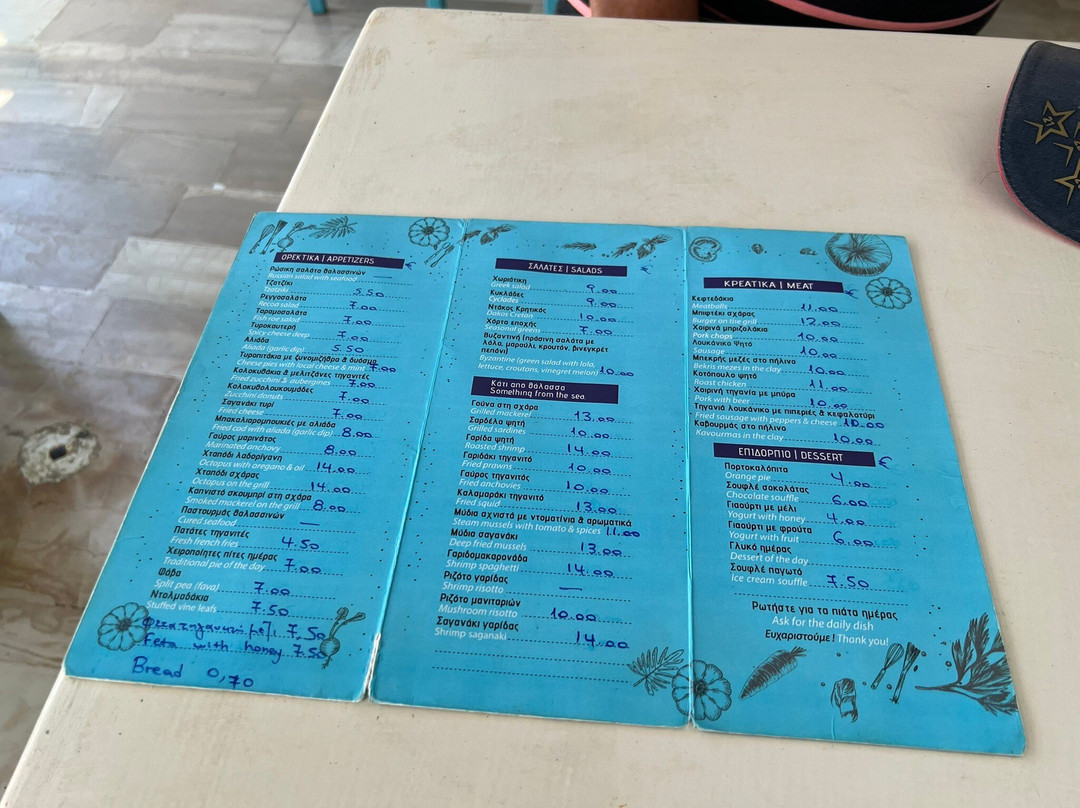 ΟΡΕΚΤΙΚΑ | APPETIZERS €
Ρώσικη σαλάτα θαλασσινών
Russian salad with seafood —
Τζατζίκι
Tzatziki 5.50
Ρεγγοσαλάτα
Regoa salad 7.00
Ταραμοσαλάτα
Fish roe salad 7.00
Τυροκαυτερή
Spicy cheese deep 7.00
Αλιάδα
Aliada (garlic dip) 5.50
Τυροπιτάκια με ξυνομιζήθρα & δυόσμο
Cheese pies with local cheese & mint 7.00
Κολοκυθάκια & μελιτζάνες τηγανιτές
Fried zucchini & aubergines 7.00
Κολοκυθολουκουμάδες
Zucchini donuts 7.00
Σαγανάκι τυρί
Fried cheese 7.00
Μπακαλιαρομπουκιές με αλιάδα
Fried cod with aliada (garlic dip) 8.00
Γαύρος μαρινάτος
Marinated anchovy 8.00
Χταπόδι λαδορίγανη
Octopus with oregano & oil 14.00
Χταπόδι σχάρας
Octopus on the grill 14.00
Καπνιστό σκουμπρί στη σχάρα
Smoked mackerel on the grill 8.00
Παστουρμάς θαλασσινών
Cured seafood —
Πατάτες τηγανιτές
Fresh french fries 4.50
Χειροποίητες πίτες ημέρας
Traditional pie of the day 7.00
Φάβα
Split pea (fava) 7.00
Ντολμαδάκια
Stuffed vine leafs 7.50
μέλι 7.50
Feta with honey 7.50
Bread 0,70
ΣΑΛΑΤΕΣ | SALADS €
Χωριάτικη
Greek salad 9.00
Κυκλάδες
Cyclades 9.00
Ντάκος Κρητικός
Dakos Cretan 10.00
Χόρτα εποχής
Seasonal greens 7.00
Βυζαντινή (πράσινη σαλάτα με
λόλα, μαρούλι, κρουτόν, βινεγκρέτ
πεπόνι)
Byzantine (green salad with lola,
lettuce, croutons, vinegret melon) 10.00
Κάτι από θάλασσα
Something from the sea
Γούνα στη σχάρα
Grilled mackerel 13.00
Σαρδέλα ψητή
Grilled sardines 10.00
Γαρίδα ψητή
Roasted shrimp 14.00
Γαριδάκι τηγανιτό
Fried prawns 10.00
Γαύρος τηγανιτός
Fried anchovies 10.00
Καλαμαράκι τηγανιτό
Fried squid 13.00
Μύδια αχνιστά με ντοματίνια & αρωματικά
Steam mussels with tomato & spices 11.00
Μύδια σαγανάκι
Deep fried mussels 13.00
Γαριδομακαρονάδα
Shrimp spaghetti 14.00
Ριζότο γαρίδας
Shrimp risotto —
Ριζότο μανιταριών
Mushroom risotto 10.00
Σαγανάκι γαρίδας
Shrimp saganaki 14.00
ΚΡΕΑΤΙΚΑ | MEAT €
Κεφτεδάκια
Meatballs 11.00
Μπιφτέκι σχάρας
Burger on the grill 12.00
Χοιρινά μπριζολάκια
Pork chops 10.00
Λουκάνικο Ψητό
Sausage 10.00
Μπεκρής μεζές στο πήλινο
Bekris mezes in the clay 10.00
Κοτόπουλο ψητό
Roast chicken 11.00
Χοιρινή τηγανία με μπύρα
Pork with beer 10.00
Τηγανιά λουκάνικο με πιπεριές & κεφαλοτύρι
Fried sausage with peppers & cheese 10.00
Καβουρμάς στο πήλινο
Kavourmas in the clay 10.00
ΕΠΙΔΟΡΠΙΟ | DESSERT €
Πορτοκαλόπιτα
Orange pie 4.00
Σουφλέ σοκολάτας
Chocolate souffle 6.00
Γιαούρτι με μέλι
Yogurt with honey 4.00
Γιαούρτι με φρούτα
Yogurt with fruit 6.00
Γλυκό ημέρας
Dessert of the day
Σουφλέ παγωτό
Ice cream souffle 7.50
Ρωτήστε για τα πιάτα ημέρας
Ask for the daily dish
Ευχαριστούμε! Thank you!